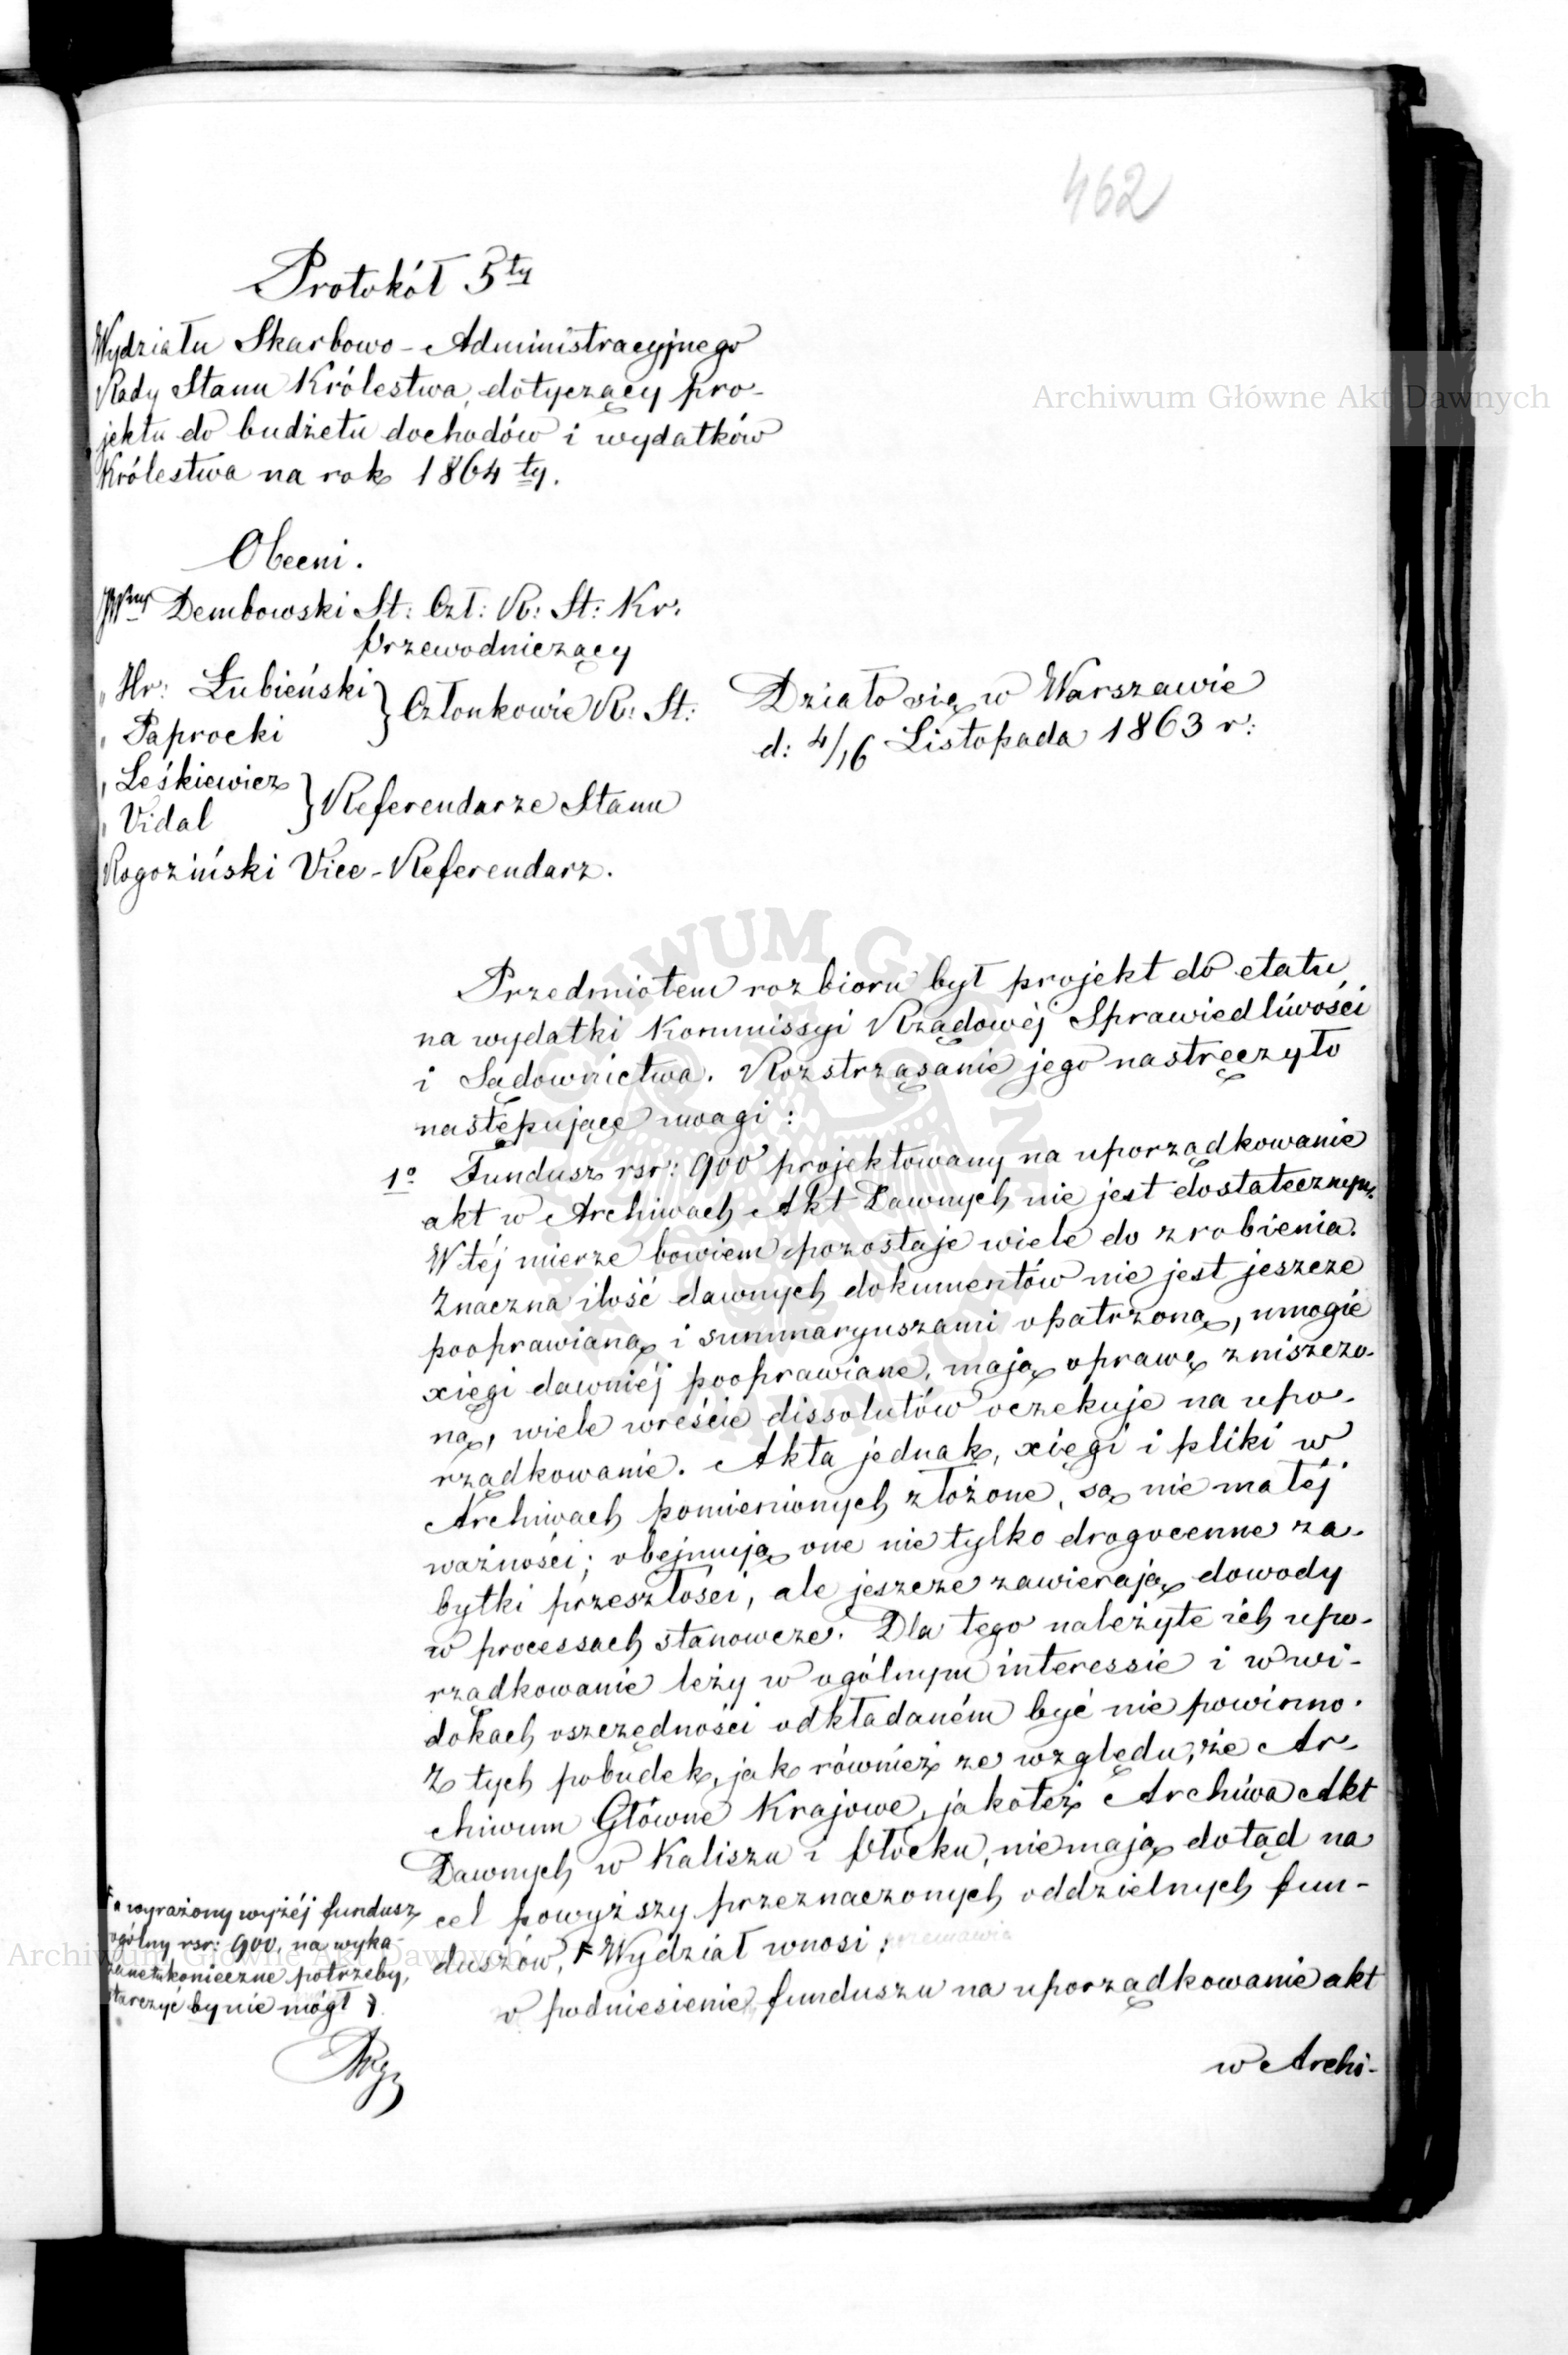 462
Protokół 5ty
Wydziału Skarbowo-Administracyjnego
Rady Stanu Królestwa, dotyczący pro-
jektu do budżetu dochodów i wydatków
Królestwa na rok 1864ty.
Obecni.
Dembowski St: Czł: R: St: Kr.
Przewodniczący
„ Hr: Łubieński } Członkowie R: St:
„ Paprocki
„ Leśkiewicz } Referendarze Stanu
„ Vidal
Rogoziński Vice-Referendarz.
Działo się w Warszawie
d: 4/16 Listopada 1863 r:
Przedmiotem rozbioru był projekt do etatu
na wydatki Kommissyi Rządowéj Sprawiedliwości
i Sądownictwa. Rozstrząsanie jego nastręczyło
następujące uwagi:
1o Fundusz rsr: 900 projektowany na uporządkowanie
akt w Archiwach Akt Dawnych nie jest dostatecznym.
W téj mierze bowiem pozostaje wiele do zrobienia.
Znaczna ilość dawnych dokumentów nie jest jeszcze
pooprawianą i summaryuszami opatrzoną, mnogie
xięgi dawniéj pooprawiane, mają oprawę zniszczo-
ną, wiele wreście dissolutów oczekuje na upo-
rządkowanie. Akta jednak, xięgi i pliki w
Archiwach pomienionych złożone, są nie małéj
ważności; obejmują one nie tylko drogocenne za-
bytki przeszłości, ale jeszcze zawierają dowody
w processach stanowcze. Dla tego należyte ich upo-
rządkowanie leży w ogólnym interessie i w wi-
dokach oszczędności odkładaném być nie powinno.
Z tych pobudek, jak również ze względu, że Ar-
chiwum Główne Krajowe, jakoteż Archiwa Akt
Dawnych w Kaliszu i Płocku, niemają dotąd na
cel powyższy przeznaczonych oddzielnych fun-
duszów, F Wydział wnosi:
o podniesienie funduszu na uporządkowanie akt
w Archi-
F a wyrażony wyżéj fundusz
ogólny rsr: 900, na wyka-
zane tu konieczne potrzeby,
starczyć by nie mógł
Archiwum Główne Akt Dawnych
Archiwum Główne Akt Dawnych